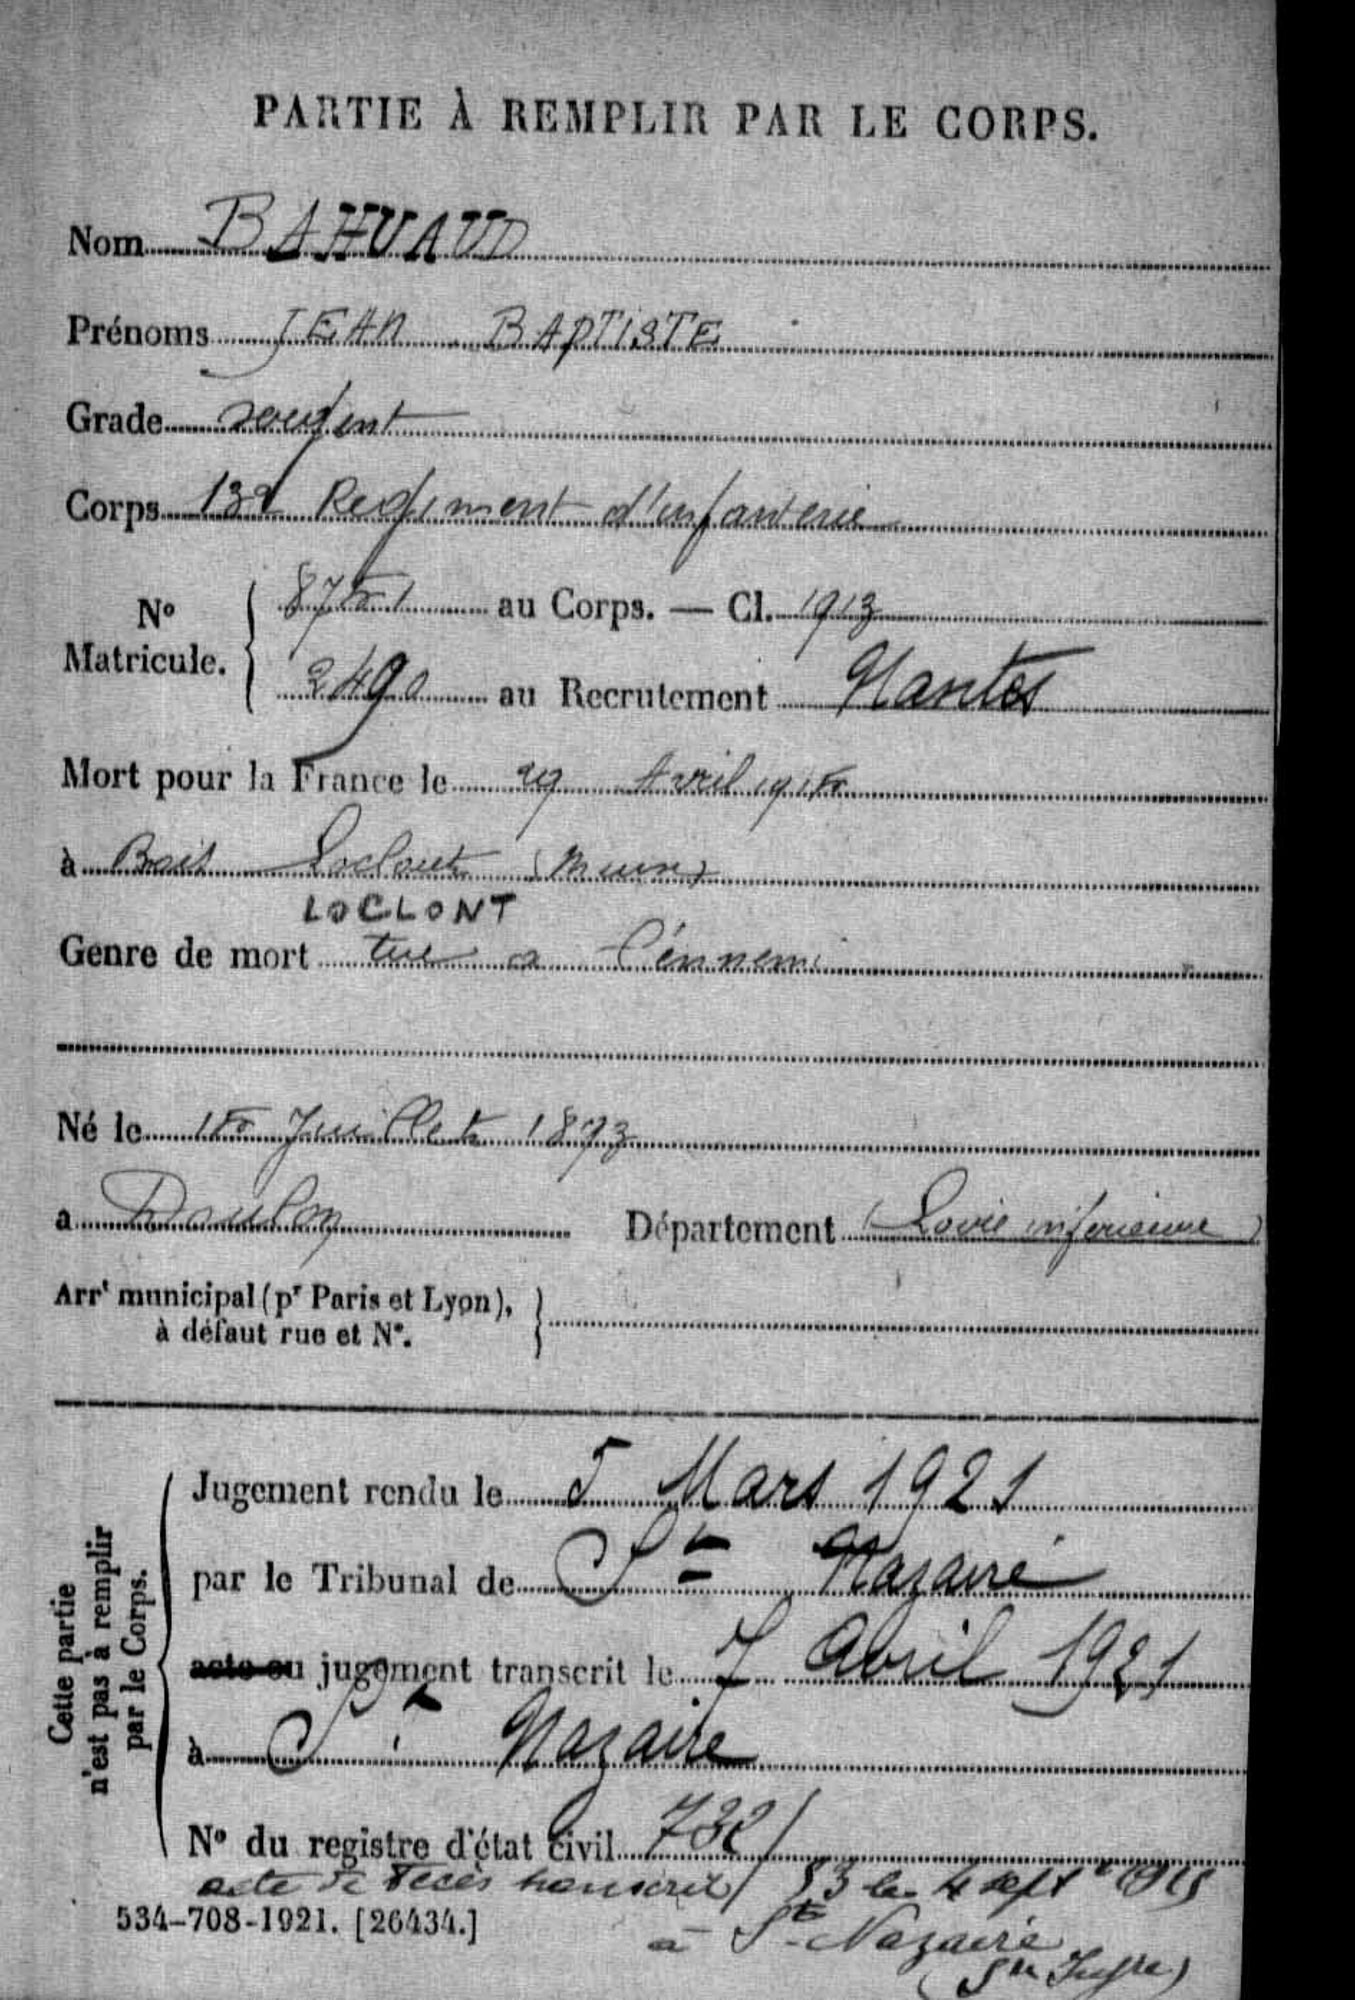 PARTIE À REMPLIR PAR LE CORPS.
Nom BAHUAUD
Prénoms JEAN BAPTISTE
Grade sergent
Corps 132 Regiment d'infanterie
N° Matricule. 8751 au Corps. — Cl. 1913
2490 au Recrutement Nantes
Mort pour la France le 29 Avril 1915
à Bois Loclont (Meuse)
LOCLONT
Genre de mort tué a l'énnemi
Né le 15 Juillet 1893
a Doulon Département (Loire inferieure)
Arrt municipal (pr Paris et Lyon),
à défaut rue et N°.
Cette partie
n'est pas à remplir
par le Corps.
Jugement rendu le 5 Mars 1921
par le Tribunal de St Nazaire
acte ou jugement transcrit le 7 Avril 1921
à St Nazaire
N° du registre d'état civil 732/
acte de décès transcrit / 53 le 4 septe 1915
534-708-1921. [26434.]
à St Nazaire
(Lre Infre)